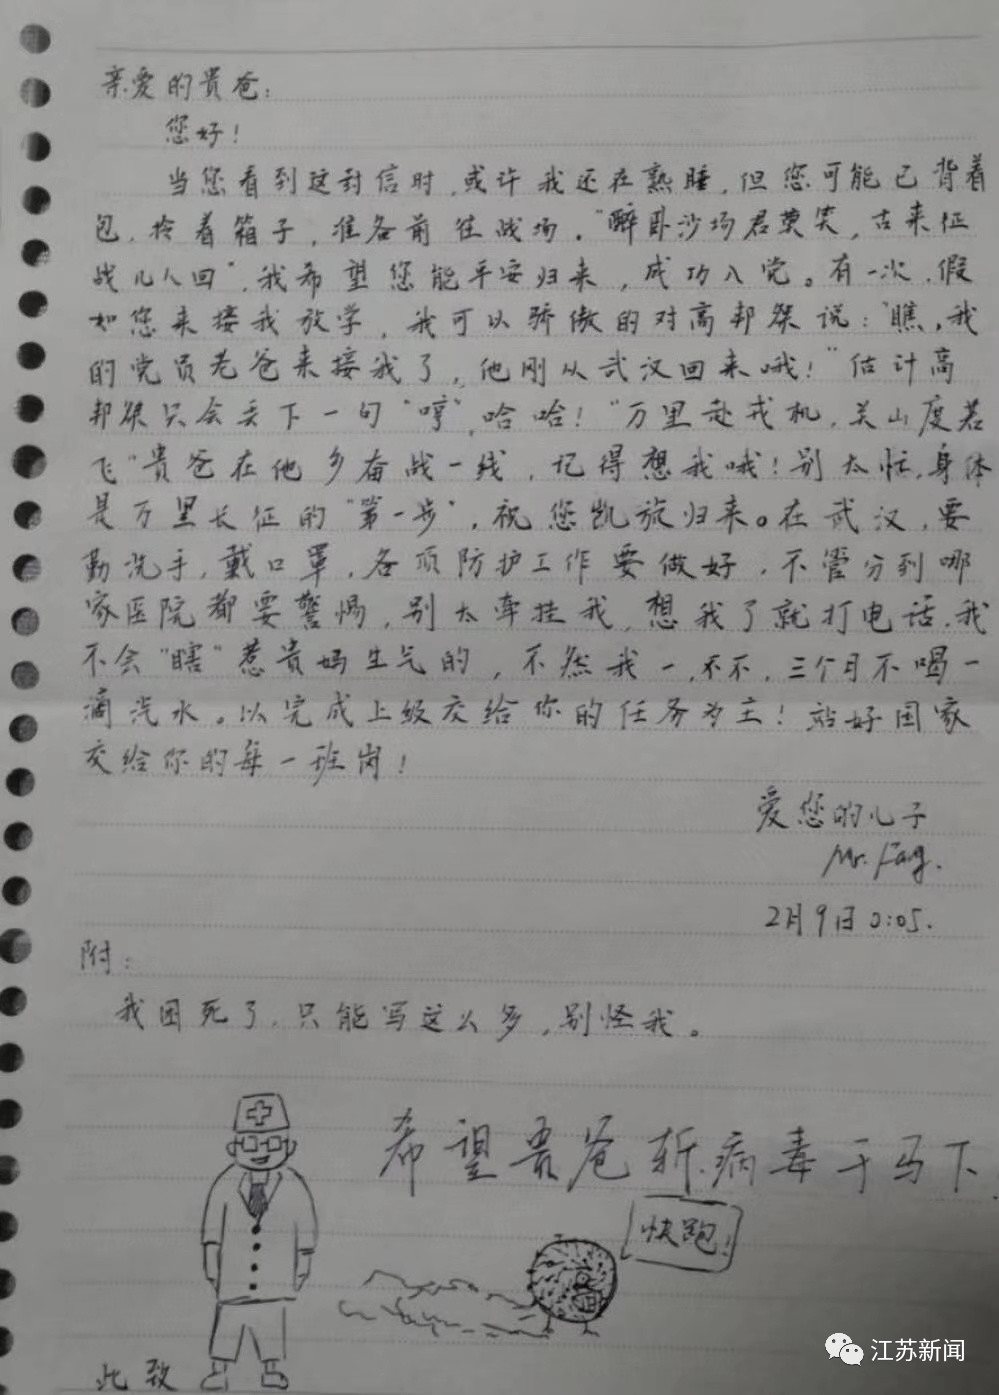 亲爱的贵爸:
您好!
当您看到这封信时,或许我还在熟睡,但您可能已背着
包,拎着箱子,准备前往战场。“醉卧沙场君莫笑,古来征
战几人回”,我希望您能平安归来,成功入党。有一次,假
如您来接我放学,我可以骄傲的对高邦桀说:“瞧,我
的党员老爸来接我了,他刚从武汉回来哦!”估计高
邦桀只会丢下一句“哼”,哈哈!“万里赴戎机,关山度若
飞”贵爸在他乡奋战一线,记得想我哦!别太忙,身体
是万里长征的“第一步”,祝您凯旋归来。在武汉,要
勤洗手,戴口罩,各项防护工作要做好,不管分到哪
家医院都要警惕,别太牵挂我,想我了就打电话,我
不会“瞎”惹贵妈生气的,不然我一,不不,三个月不喝一
滴汽水。以完成上级交给你的任务为主!站好国家
交给你的每一班岗!
爱您的儿子
Mr. Fang.
2月9日0:05.
附:
我困死了,只能写这么多,别怪我。
希望吾爸斩病毒于马下
快跑!
此致
江苏新闻